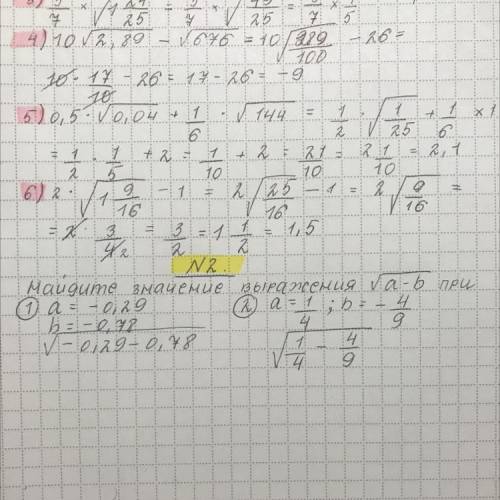 4) 10√2,89 − √676 = 10√289/100 − 26 =
10 · 17/10 − 26 = 17 − 26 = −9
5) 0,5 · √0,04 + 1/6 · √144 = 1/2 · √1/25 + 1/6 × 1
= 1/2 · 1/5 + 2 = 1/10 + 2 = 21/10 = 2 1/10 = 2,1
6) 2 · √1 9/16 − 1 = 2√25/16 − 1 = 2√9/16 =
= 2 3/4 2 = 3/2 = 1 1/2 = 1,5
N2.
Найдите значение выражения √a−b при
1 a = −0,29
b = −0,78
√−0,29−0,78
2 a = 1/4 ; b = − 4/9
√1/4 − 4/9